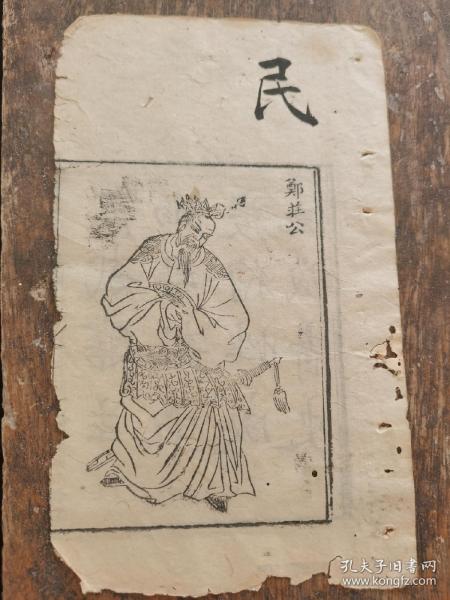 民
鄭莊公
孔夫子旧书网
www.kongfz.com